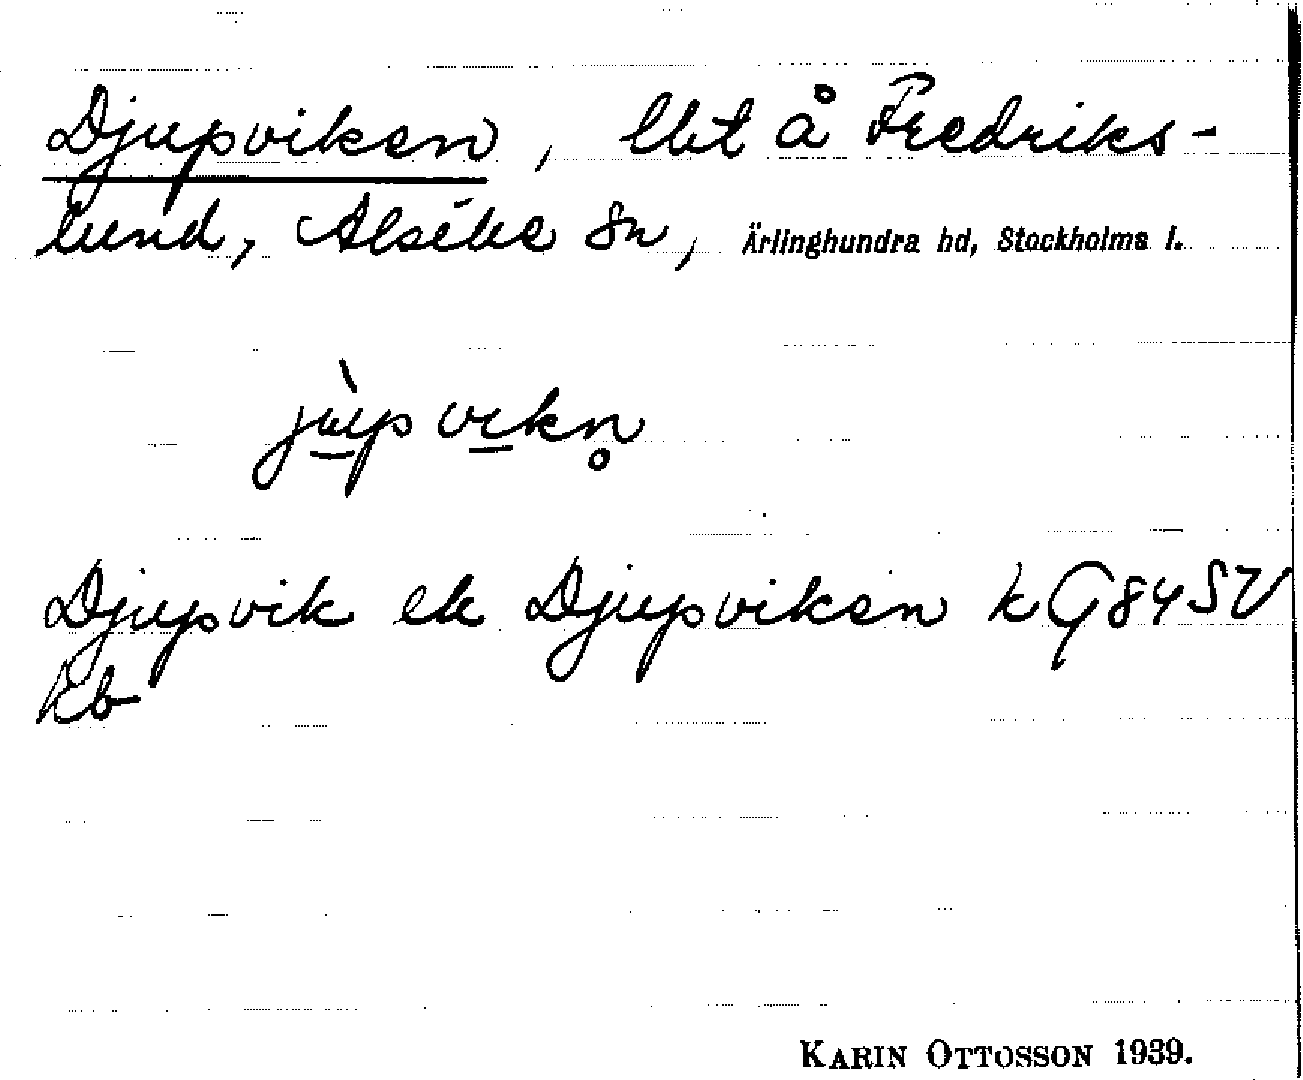 Djupviken, lht å Fredriks-
lund, Alsike sn, Ärlinghundra hd, Stockholms l.
jùpvikn̥
Djupvik ek Djupviken k G 84 SV
kb
KARIN OTTOSSON 1939.